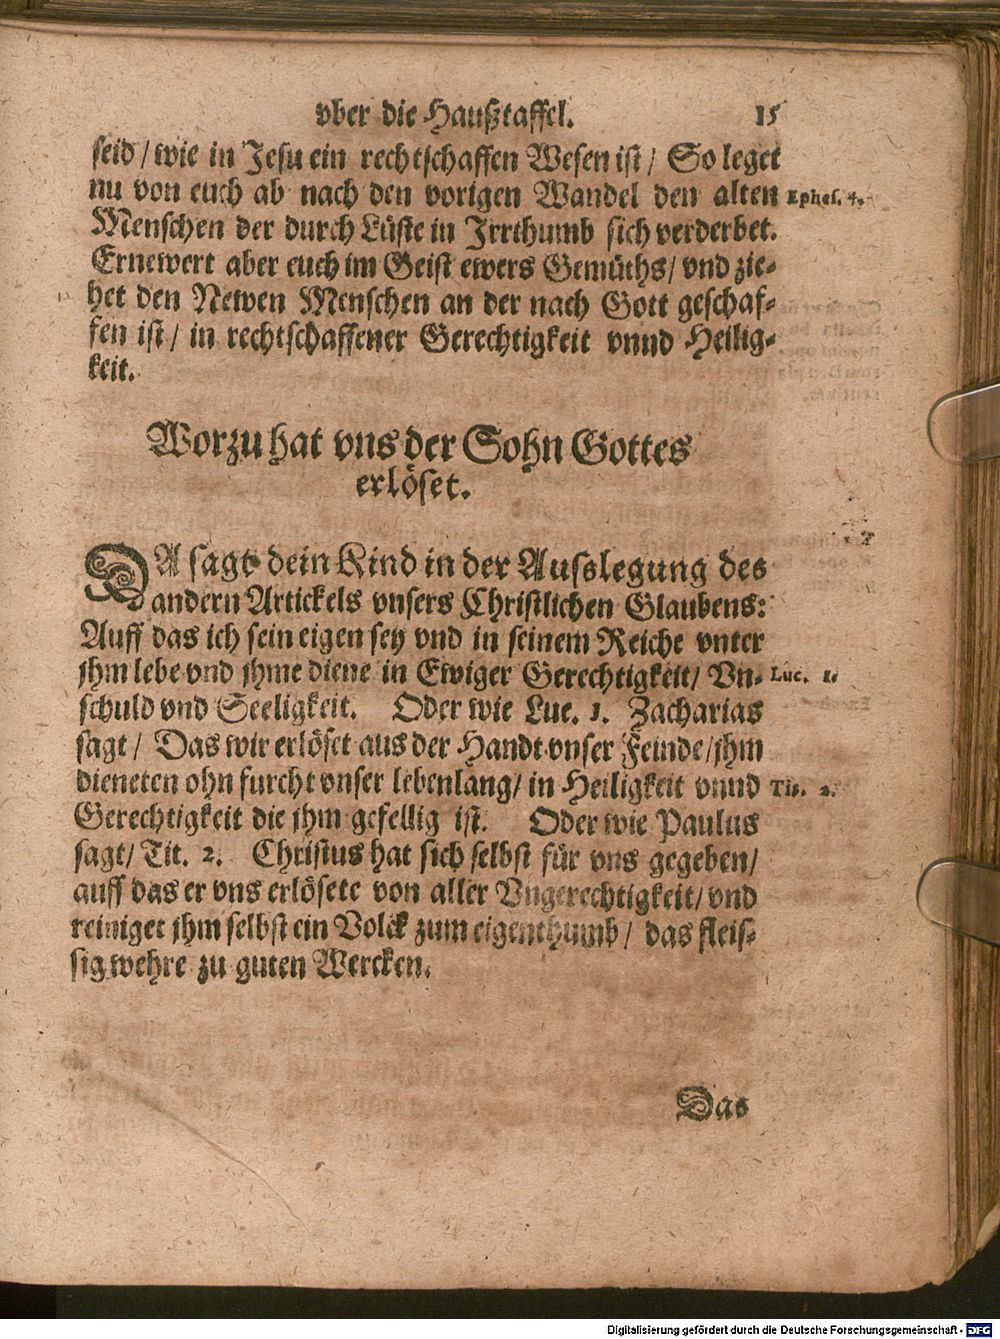 vber die Haußtaffel. 15
seid / wie in Jesu ein rechtschaffen Wesen ist / So leget
nu von euch ab nach den vorigen Wandel den alten Ephes. 4.
Menschen der durch Lüste in Irrthumb sich verderbet.
Ernewert aber euch im Geist ewers Gemüths / vnd zie-
het den Newen Menschen an der nach Gott geschaf-
fen ist / in rechtschaffener Gerechtigkeit vnnd Heilig-
keit.
Worzu hat vns der Sohn Gottes
erlöset.
DA sagt dein Kind in der Ausslegung des
andern Artickels vnsers Christlichen Glaubens:
Auff das ich sein eigen sey vnd in seinem Reiche vnter
jhm lebe vnd jhme diene in Ewiger Gerechtigkeit / Vn- Luc. 1.
schuld vnd Seeligkeit. Oder wie Luc. 1. Zacharias
sagt / Das wir erlöset aus der Handt vnser Feinde / jhm
dieneten ohn furcht vnser lebenlang / in Heiligkeit vnnd Tit. 2.
Gerechtigkeit die jhm gefellig ist. Oder wie Paulus
sagt / Tit. 2. Christus hat sich selbst für vns gegeben /
auff das er vns erlösete von aller Vngerechtigkeit / vnd
reiniget jhm selbst ein Volck zum eigenthumb / das fleis-
sig wehre zu guten Wercken.
Das
Digitalisierung gefördert durch die Deutsche Forschungsgemeinschaft - DFG